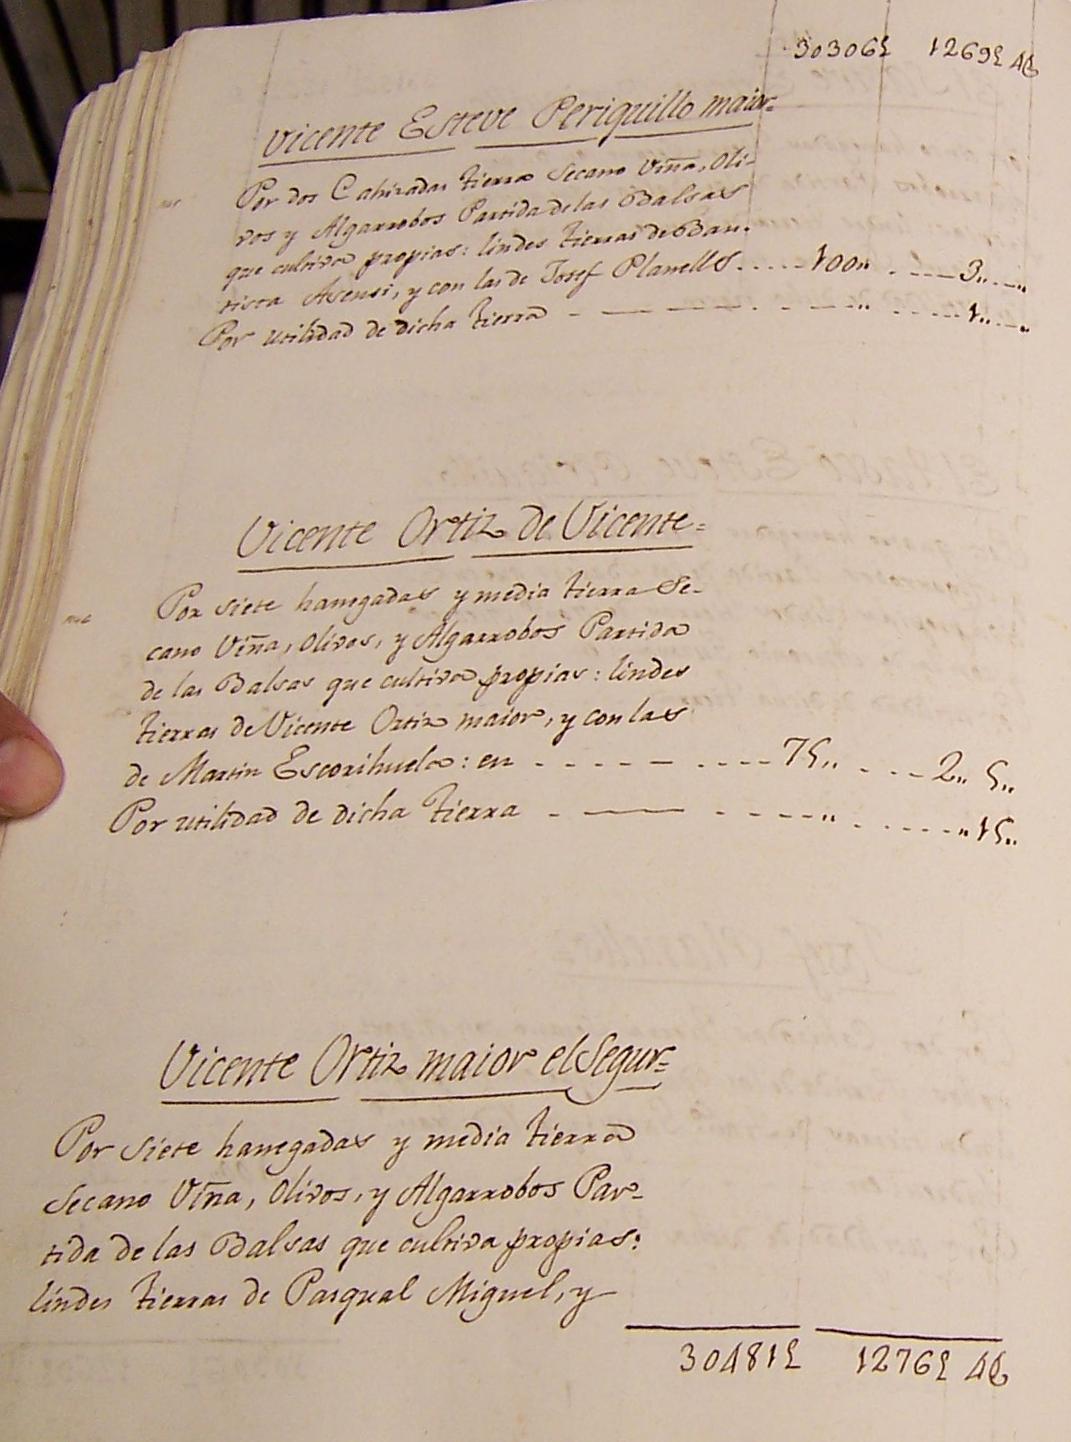 30306£ 1269£ 4₰
Vicente Esteve Periquillo maior=
Por dos Cahizadas tierra Secano Viña, Oli-
vos y Algarrobos Partida de las Balsas
que cultiva propias: lindes tierras de Bau-
tista Asensi, y con las de Josef Planells.....100,, . .___3,,.__,,
Por utilidad de dicha tierra - — — — . - — - ,, .....1,,.__,,
Vicente Ortiz de Vicente=
Por siete hanegadas y media tierra Se-
cano Viña, Olivos, y Algarrobos Partida
de las Balsas que cultiva propias: lindes
tierras de Vicente Ortiz maior, y con las
de Martin Escorihuela: en - - - - - ....75,, . ...2,, 5,,
Por utilidad de dicha tierra - —— - - - - ,, . .....,,15,,
Vicente Ortiz maior el Segur=
Por siete hanegadas y media tierra
Secano Viña, Olivos, y Algarrobos Par-
tida de las Balsas que cultiva propias:
lindes tierras de Pasqual Miguel, y
30481£ 1276£ 4₰